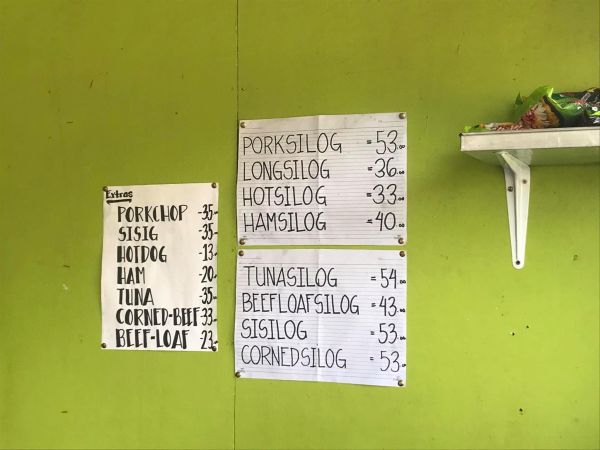 Extras
PORKCHOP -35-
SISIG -35-
HOTDOG -13-
HAM -20-
TUNA -35-
CORNED-BEEF 33-
BEEF-LOAF -23-
PORKSILOG = 53.00
LONGSILOG = 36.00
HOTSILOG = 33.00
HAMSILOG = 40.00
TUNASILOG = 54.00
BEEFLOAFSILOG = 43.00
SISILOG = 53.00
CORNEDSILOG = 53.00